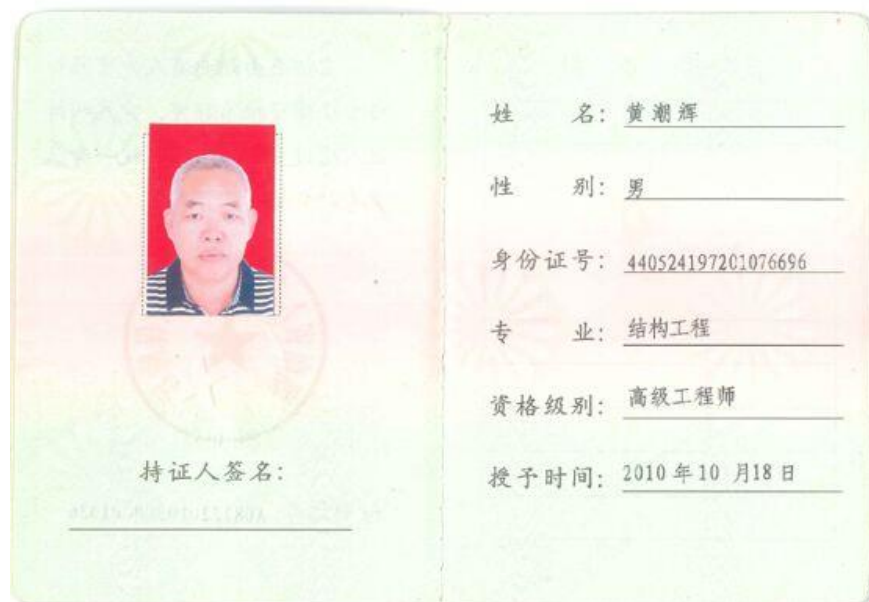 持证人签名:
姓 名: 黄潮辉
性 别: 男
身份证号: 440524197201076696
专 业: 结构工程
资格级别: 高级工程师
授予时间: 2010 年 10 月 18 日